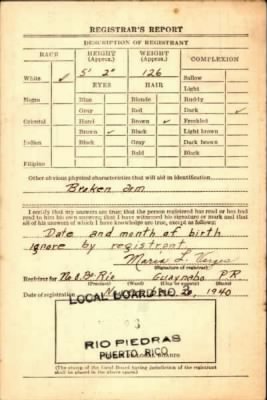 REGISTRAR'S REPORT
DESCRIPTION OF REGISTRANT
RACE
HEIGHT
(Approx.)
WEIGHT
(Approx.)
COMPLEXION
White ✓
5' 2"
126
Sallow
EYES
HAIR
Light
Negro
Blue
Blonde
Ruddy
Gray
Red
Dark ✓
Oriental
Hazel
Brown ✓
Freckled
Brown ✓
Black
Light brown
Indian
Black
Gray
Dark brown
Bald
Black
Filipino
Other obvious physical characteristics that will aid in identification
Broken arm
I certify that my answers are true; that the person registered has read or has had
read to him his own answers; that I have witnessed his signature or mark and that
all of his answers of which I have knowledge are true, except as follows:
Date and month of birth
ignore by registrant.
Maria L.
(Signature of registrar)
Registrar for
Rio
Guaynabo
P.R.
(Precinct)
(Ward)
(City or county)
(State)
Date of registration
20, 1940
LOCAL BOARD NO.
RIO PIEDRAS
PUERTO RICO
(The stamp of the Local Board having jurisdiction of the registrant
shall be placed in the above space.)